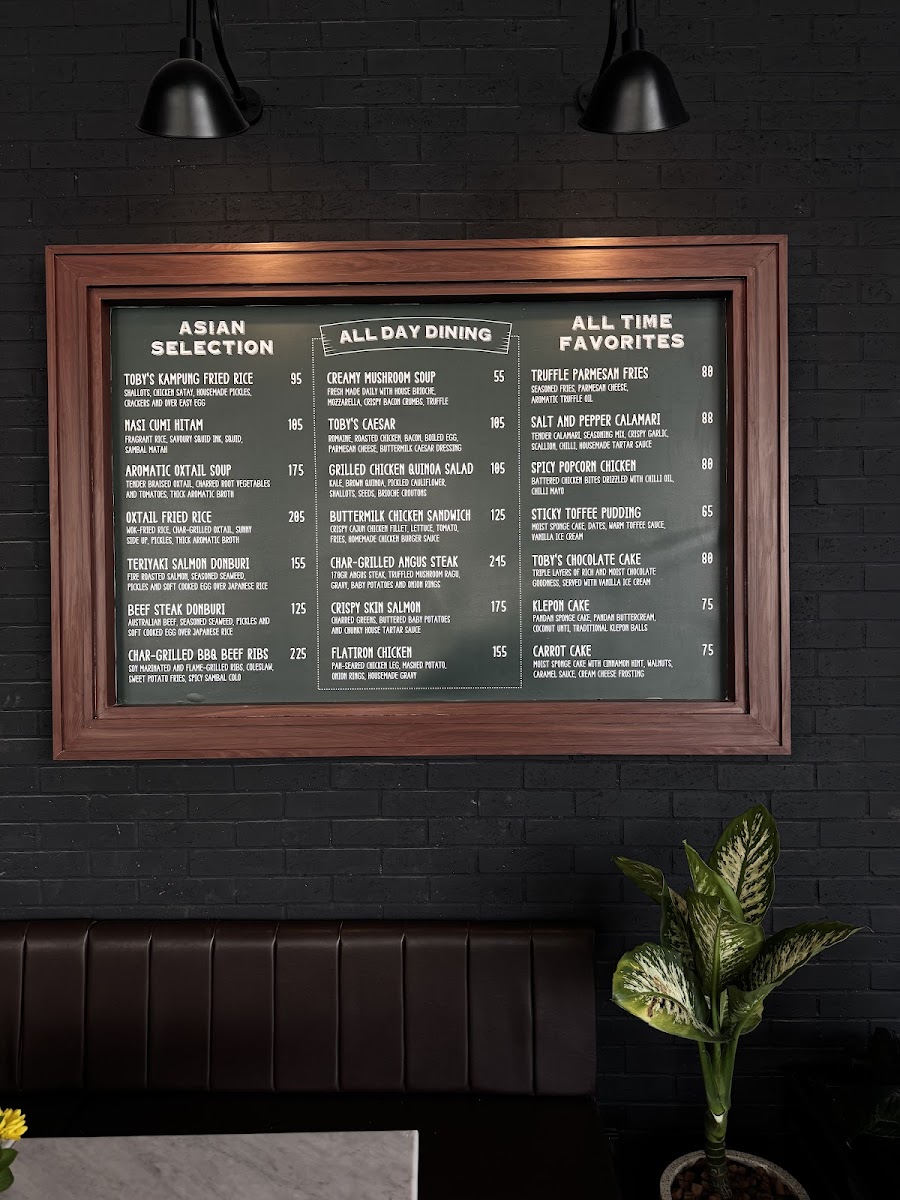 ASIAN
SELECTION
TOBY'S KAMPUNG FRIED RICE 95
SHALLOTS, CHICKEN SATAY, HOUSEMADE PICKLES,
CRACKERS AND OVER EASY EGG
NASI CUMI HITAM 105
FRAGRANT RICE, SAVOURY SQUID INK, SQUID,
SAMBAL MATAH
AROMATIC OXTAIL SOUP 175
TENDER BRAISED OXTAIL, CHARRED ROOT VEGETABLES
AND TOMATOES, THICK AROMATIC BROTH
OXTAIL FRIED RICE 205
WOK-FRIED RICE, CHAR-GRILLED OXTAIL, SUNNY
SIDE UP, PICKLES, THICK AROMATIC BROTH
TERIYAKI SALMON DONBURI 155
FIRE ROASTED SALMON, SEASONED SEAWEED,
PICKLES AND SOFT COOKED EGG OVER JAPANESE RICE
BEEF STEAK DONBURI 125
AUSTRALIAN BEEF, SEASONED SEAWEED, PICKLES AND
SOFT COOKED EGG OVER JAPANESE RICE
CHAR-GRILLED BBQ BEEF RIBS 225
SOY MARINATED AND FLAME-GRILLED RIBS, COLESLAW,
SWEET POTATO FRIES, SPICY SAMBAL COLO
ALL DAY DINING
CREAMY MUSHROOM SOUP 55
FRESH MADE DAILY WITH HOUSE BRIOCHE,
MOZZARELLA, CRISPY BACON CRUMBS, TRUFFLE
TOBY'S CAESAR 105
ROMAINE, ROASTED CHICKEN, BACON, BOILED EGG,
PARMESAN CHEESE, BUTTERMILK CAESAR DRESSING
GRILLED CHICKEN QUINOA SALAD 105
KALE, BROWN QUINOA, PICKLED CAULIFLOWER,
SHALLOTS, SEEDS, BRIOCHE CROUTONS
BUTTERMILK CHICKEN SANDWICH 125
CRISPY CAJUN CHICKEN FILLET, LETTUCE, TOMATO,
FRIES, HOMEMADE CHICKEN BURGER SAUCE
CHAR-GRILLED ANGUS STEAK 245
170GR ANGUS STEAK, TRUFFLED MUSHROOM RAGU,
GRAVY, BABY POTATOES AND ONION RINGS
CRISPY SKIN SALMON 175
CHARRED GREENS, BUTTERED BABY POTATOES
AND CHUNKY HOUSE TARTAR SAUCE
FLATIRON CHICKEN 155
PAN-SEARED CHICKEN LEG, MASHED POTATO,
ONION RINGS, HOUSEMADE GRAVY
ALL TIME
FAVORITES
TRUFFLE PARMESAN FRIES 80
SEASONED FRIES, PARMESAN CHEESE,
AROMATIC TRUFFLE OIL
SALT AND PEPPER CALAMARI 88
TENDER CALAMARI, SEASONING MIX, CRISPY GARLIC,
SCALLION, CHILLI, HOUSEMADE TARTAR SAUCE
SPICY POPCORN CHICKEN 80
BATTERED CHICKEN BITES DRIZZLED WITH CHILLI OIL,
CHILLI MAYO
STICKY TOFFEE PUDDING 65
MOIST SPONGE CAKE, DATES, WARM TOFFEE SAUCE,
VANILLA ICE CREAM
TOBY'S CHOCOLATE CAKE 80
TRIPLE LAYERS OF RICH AND MOIST CHOCOLATE
GOODNESS, SERVED WITH VANILLA ICE CREAM
KLEPON CAKE 75
PANDAN SPONGE CAKE, PANDAN BUTTERCREAM,
COCONUT UNTI, TRADITIONAL KLEPON BALLS
CARROT CAKE 75
MOIST SPONGE CAKE WITH CINNAMON HINT, WALNUTS,
CARAMEL SAUCE, CREAM CHEESE FROSTING